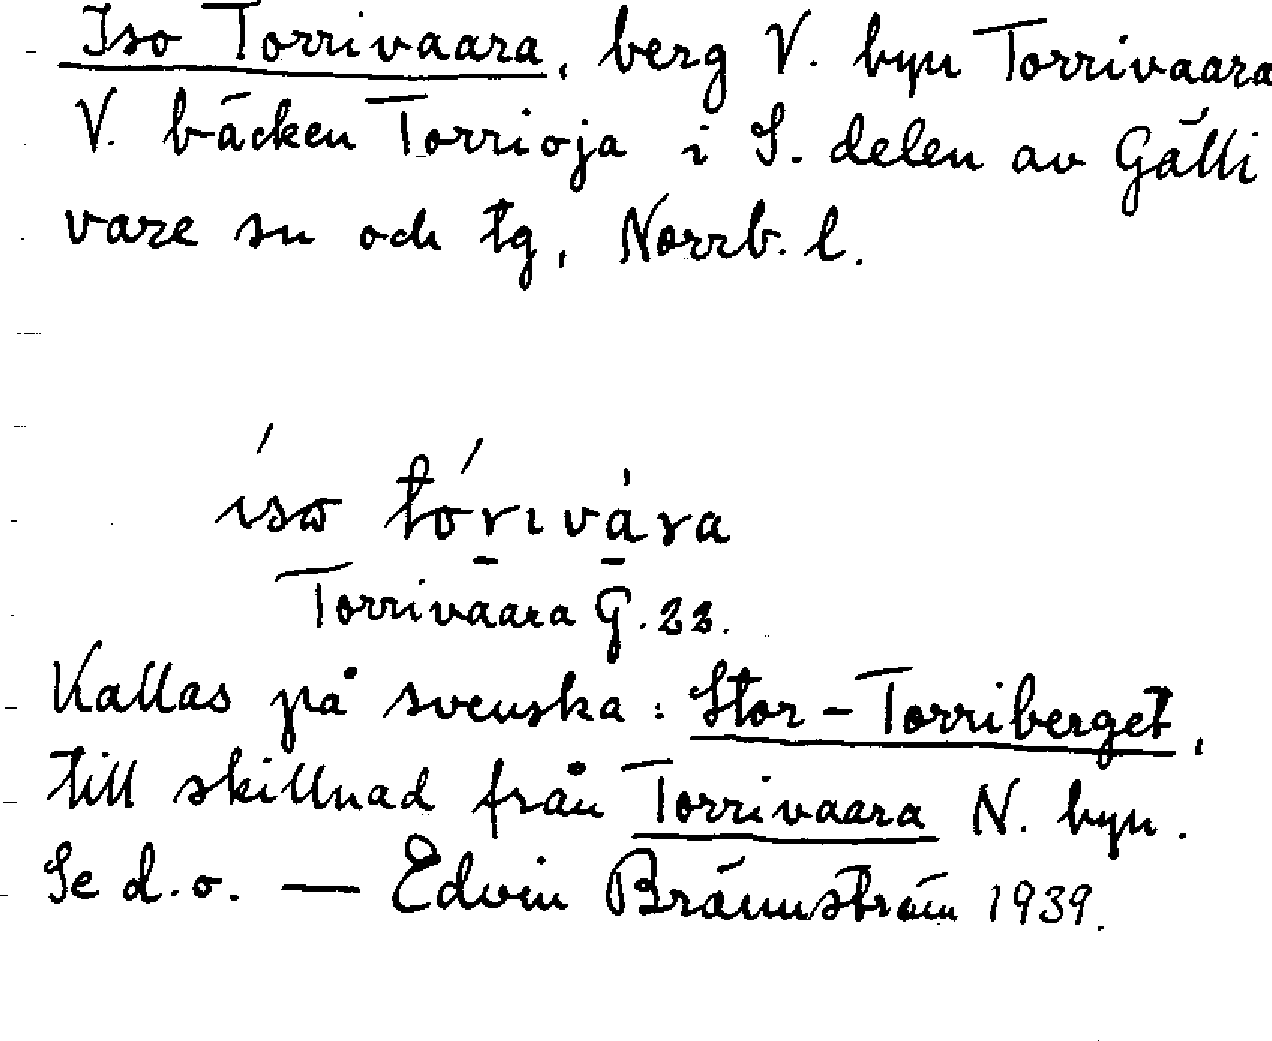 Iso Torrivaara, berg V. byn Torrivaara
V. bäcken Torrioja i S. delen av Gälli
vare sn och tg, Norrb. l.
íso tórıvára
Torrivaara G. 23.
Kallas på svenska: Stor-Torriberget,
till skillnad från Torrivaara N. byn.
Se d.o. — Edvin Brännström 1939.